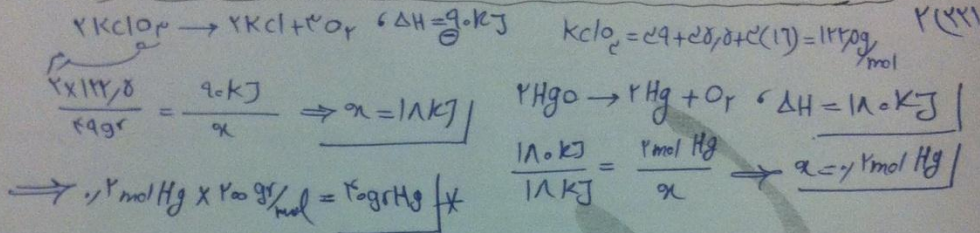 ۲۲۱) ۲
۲KClO۳ → ۲KCl + ۳O۲ ، ΔH = ⊖۹۰KJ    KClO۳ = ۳۹ + ۳۵٫۵ + ۳(۱۶) = ۱۲۲٫۵g/mol
۲×۱۲۲٫۵ / ۴۹gr = ۹۰KJ / x ⇒ x = ۱۸KJ    ۲HgO → ۲Hg + O۲ ، ΔH = ۱۸۰KJ
۱۸۰KJ / ۱۸KJ = ۲mol Hg / x ⇒ x = ۰٫۲mol Hg
⇒ ۰٫۲mol Hg × ۲۰۰gr/mol = ۴۰gr Hg *